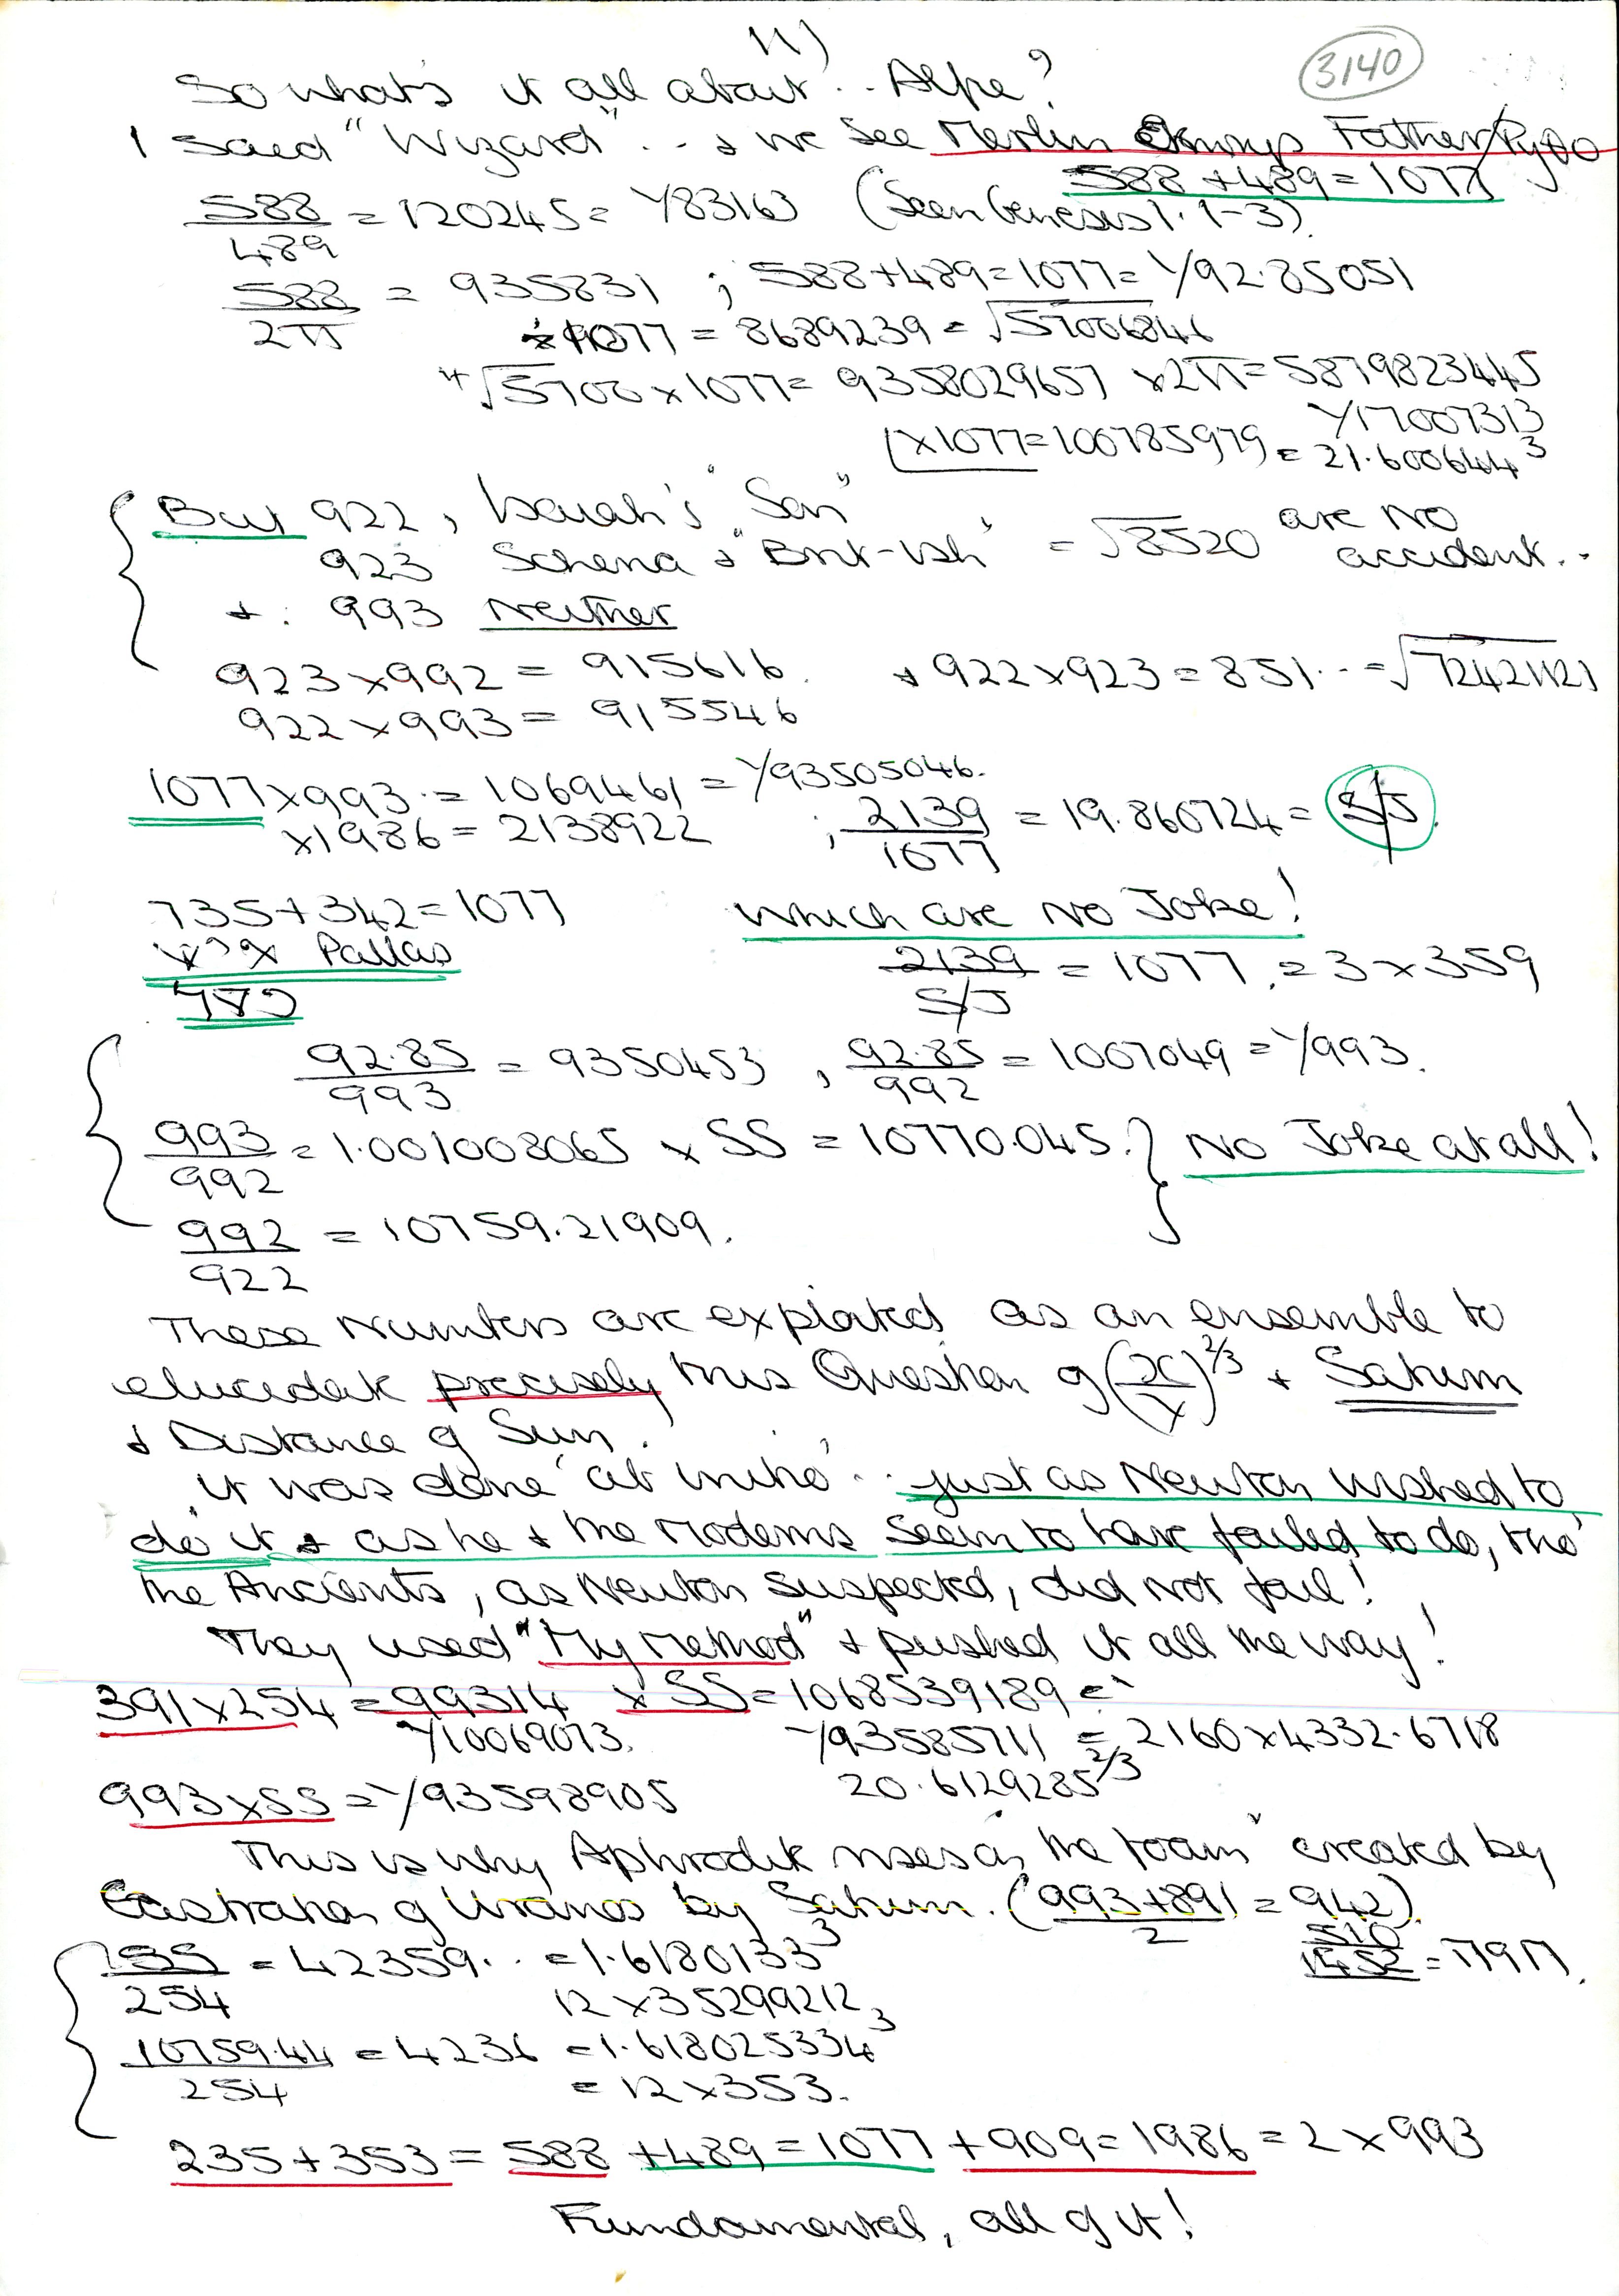 11)
3140
So what's it all about .. Alfie?
I said "Wizard" .. & we see Merlin Emrys Father/Pyth
588 + 489 = 1077
588/489 = 120245 = 1/83163 (Seen Genesis 1. 1-3).
588/2π = 935831 ; 588+489 = 1077 = 1/92.85051
÷ 1077 = 8689239 = √57006846
⁴√5700 x 1077 = 9358029657 x2π = 5879823445
1/17007313
(x1077 = 100785979) = 21.600644³
But 922, Isaiah's "Son"
923 Schema & "Brit-ish" = √8520 are no accident..
& : 993 Neither
923 x 992 = 915616. & 922 x 923 = 851... = √72421121
922 x 993 = 915546
1077 x 993 = 1069461 = 1/93505046.
x1986 = 2138922 ; 2139/1077 = 19.860724 = S/J.
735 + 342 = 1077 Which are No Joke!
Pallas 2139/S/J = 1077. = 3 x 359
92.85/993 = 9350453 , 92.85/992 = 1007049 = 1/993.
993/992 = 1.001008065 x SS = 10770.045. } No Joke at all!
992/922 = 10759.21909.
These Numbers are exploited as an ensemble to
elucidate precisely this Question of (x/y)^2/3 & Saturn
& Distance of Sun.
It was done 'ab initio' .. just as Newton wished to
do it & as he & the Moderns seem to have failed to do, tho'
the Ancients, as Newton suspected, did not fail!
They used "My Method" & pushed it all the way!
391 x 254 = 99314 x SS = 1068539189 =
1/10069073. 1/93585711 = 2160 x 4332.6718
993 x SS = 1/93598905 20.6129285^2/3
This is why Aphrodite rises in "the foam" created by
Castration of Uranos by Saturn. ((993+891)/2 = 942)
510
1452 = 1717.
SS/254 = 42359.. = 1.6180133³
12 x 35299212
10759.44/254 = 4236 = 1.618025334³
= 12 x 353.
235 + 353 = 588 + 489 = 1077 + 909 = 1986 = 2 x 993
Fundamental, all of it!